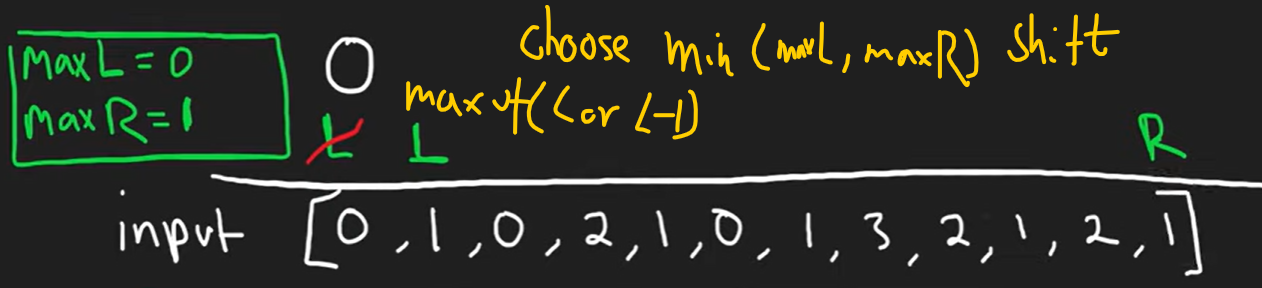 maxL = 0
maxR = 1
0
choose min (maxL, maxR) shift
max of (L or L-1)
L L R
input [0, 1, 0, 2, 1, 0, 1, 3, 2, 1, 2, 1]